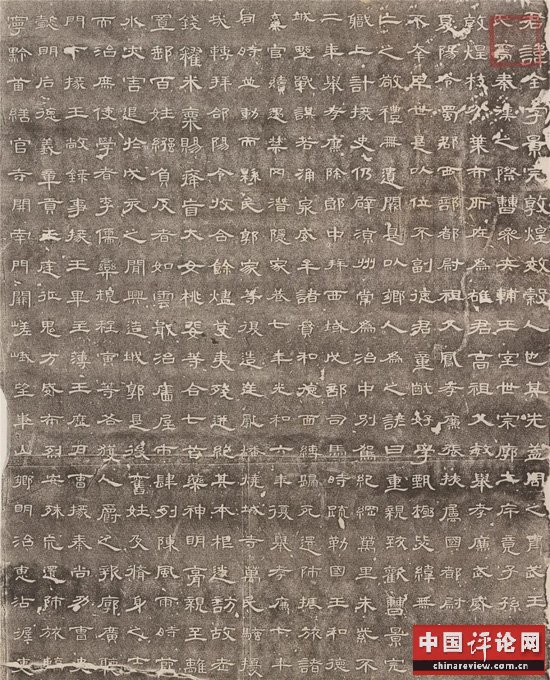 君諱全字景完敦煌效穀人也其先蓋周之胄武王
氏焉秦漢之際曹參夾輔王室世宗廓土斥竟子孫
敦煌枝分葉布所在為雄君高祖父敏舉孝廉武威
夏陽令蜀郡西部都尉祖父鳳孝廉張掖屬國都尉
不幸早世是以位不副德君童齔好學甄極毖緯無
亡之敬禮無遺闕是以鄉人為之諺曰重親致歡曹景完
職上計掾史仍辟涼州常為治中別駕紀綱萬里朱紫不
二年舉孝廉除郎中拜西域戊部司馬時疏勒國王和德
城野戰謀若涌泉威牟諸賁和德面縛歸死還師振旅諸
棄官續遇禁冈潛隱家巷七年光和六年復舉孝廉七年
同時並動而縣民郭家等復造逆亂燔燒城寺萬民騷擾
哉轉拜郃陽令收合餘燼芟夷殘迸絕其本根遂訪故老
錢糴米粟賜癃盲大女桃婓等合七首藥神明膏親至離
置郵百姓繈負反者如雲戢治廧屋市肆列陳風雨時節
水災害退於戊亥之間興造城郭是後舊姓及脩身之士
而治庶使學者李儒欒規程寅等各獲人爵之報廓廣聽
門下掾王敞錄事掾王畢主薄王歷戶曹掾秦尚功曹史
懿明后德義章貢王庭征鬼方威布烈安殊荒還師旅臨
寧黔首繕官寺開南門闕嵯峨望華山鄉明治惠沾渥吏
中国评论网
chinareview.com.cn